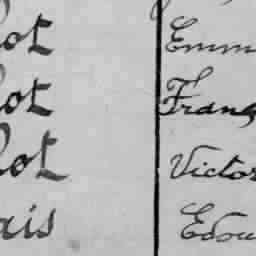 lot Emm
lot Franç
lot Victor
ais Edou